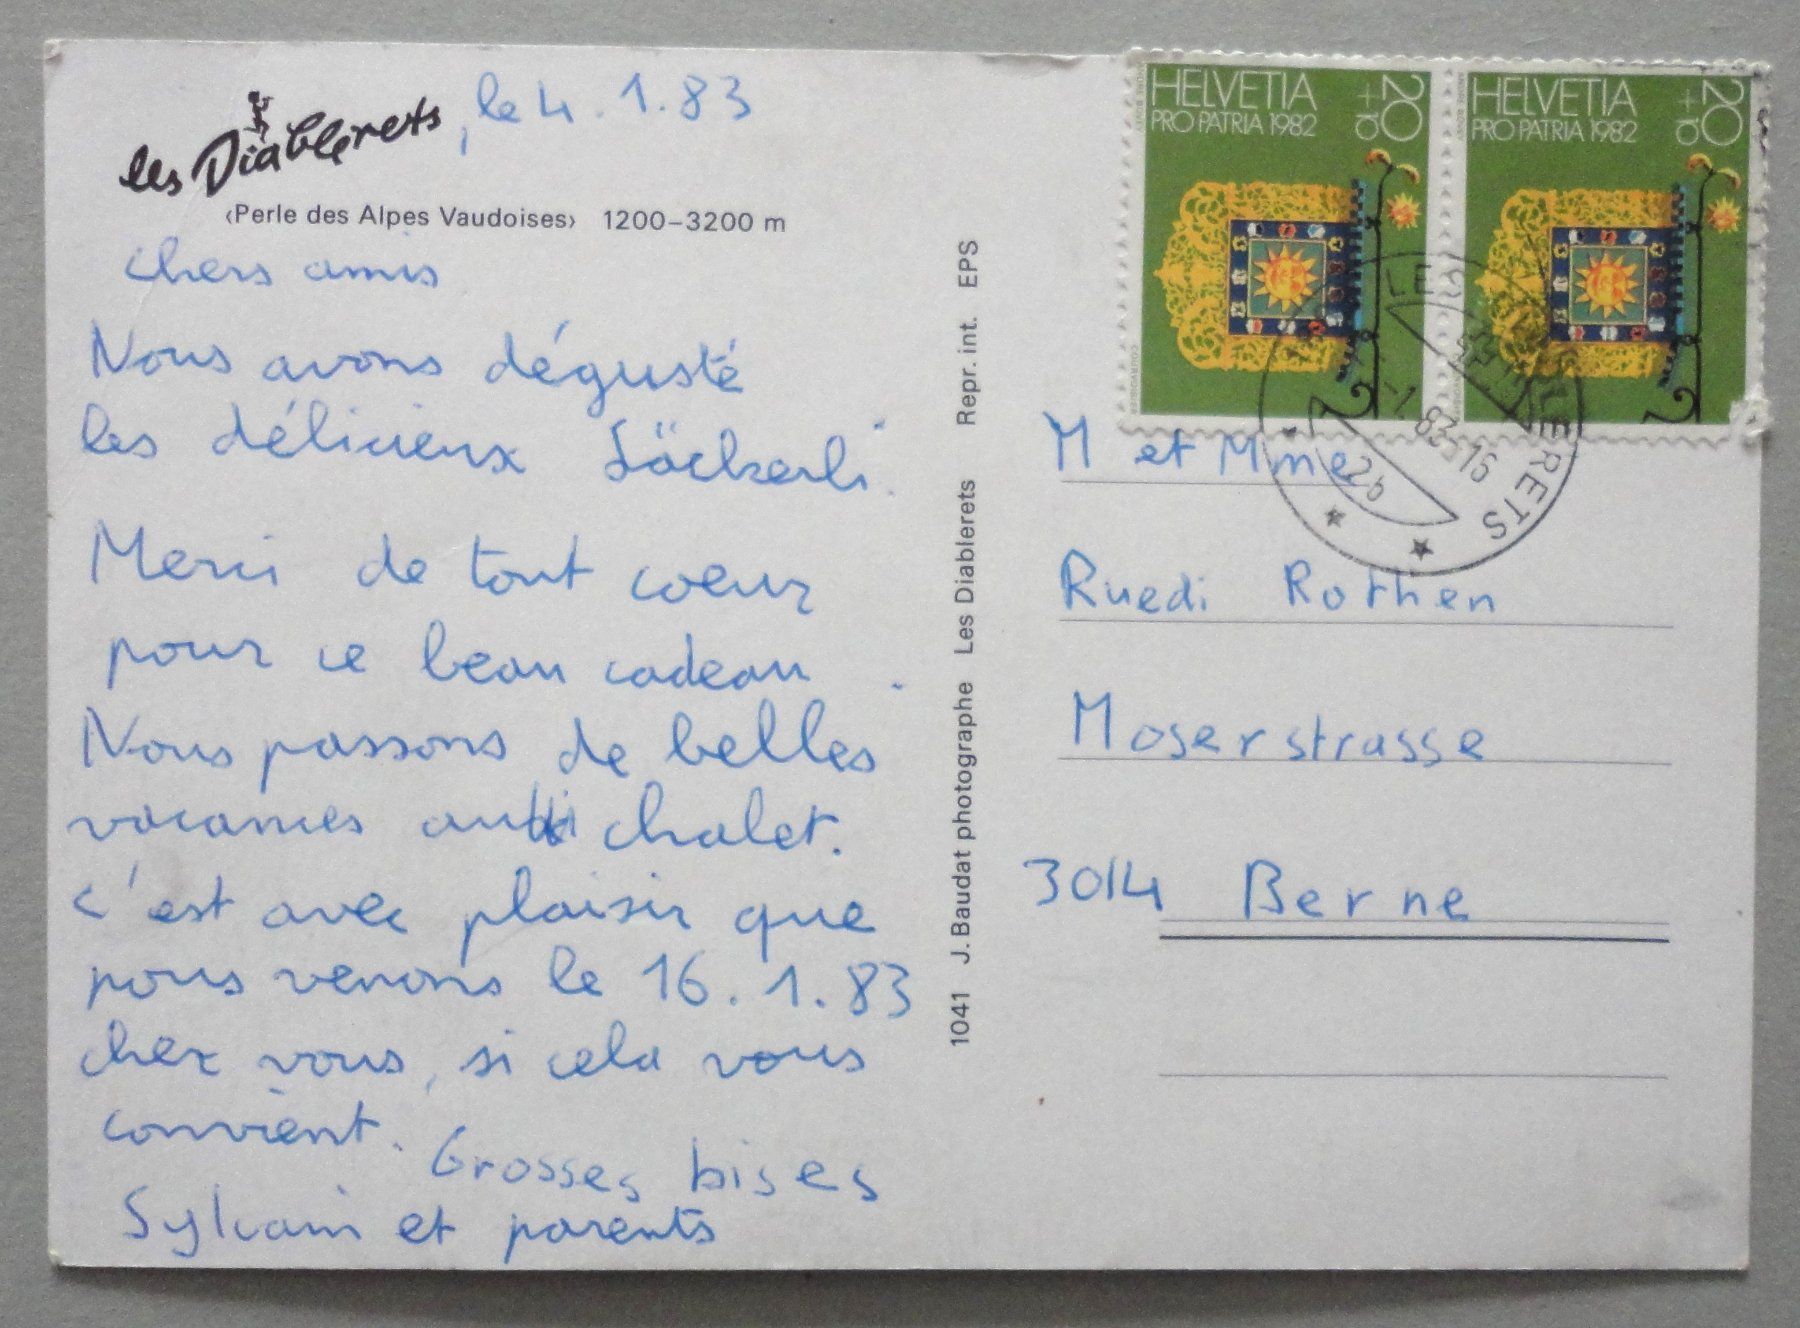 les Diablerets, le 4.1.83
‹Perle des Alpes Vaudoises› 1200–3200 m
chers amis
Nous avons dégusté
les délicieux Löckerli.
Merci de tout coeur
pour ce beau cadeau.
Nous passons de belles
vacances au chalet.
c'est avec plaisir que
nous venons le 16.1.83
chez vous, si cela vous
convient.
Grosses bises
Sylvain et parents
1041 J. Baudat photographe Les Diablerets Repr. int. EPS
HELVETIA 20+10
PRO PATRIA 1982
HELVETIA 20+10
PRO PATRIA 1982
LES DIABLERETS
-1.83-16
M et Mme
Ruedi Rothen
Moserstrasse 26
3014 Berne